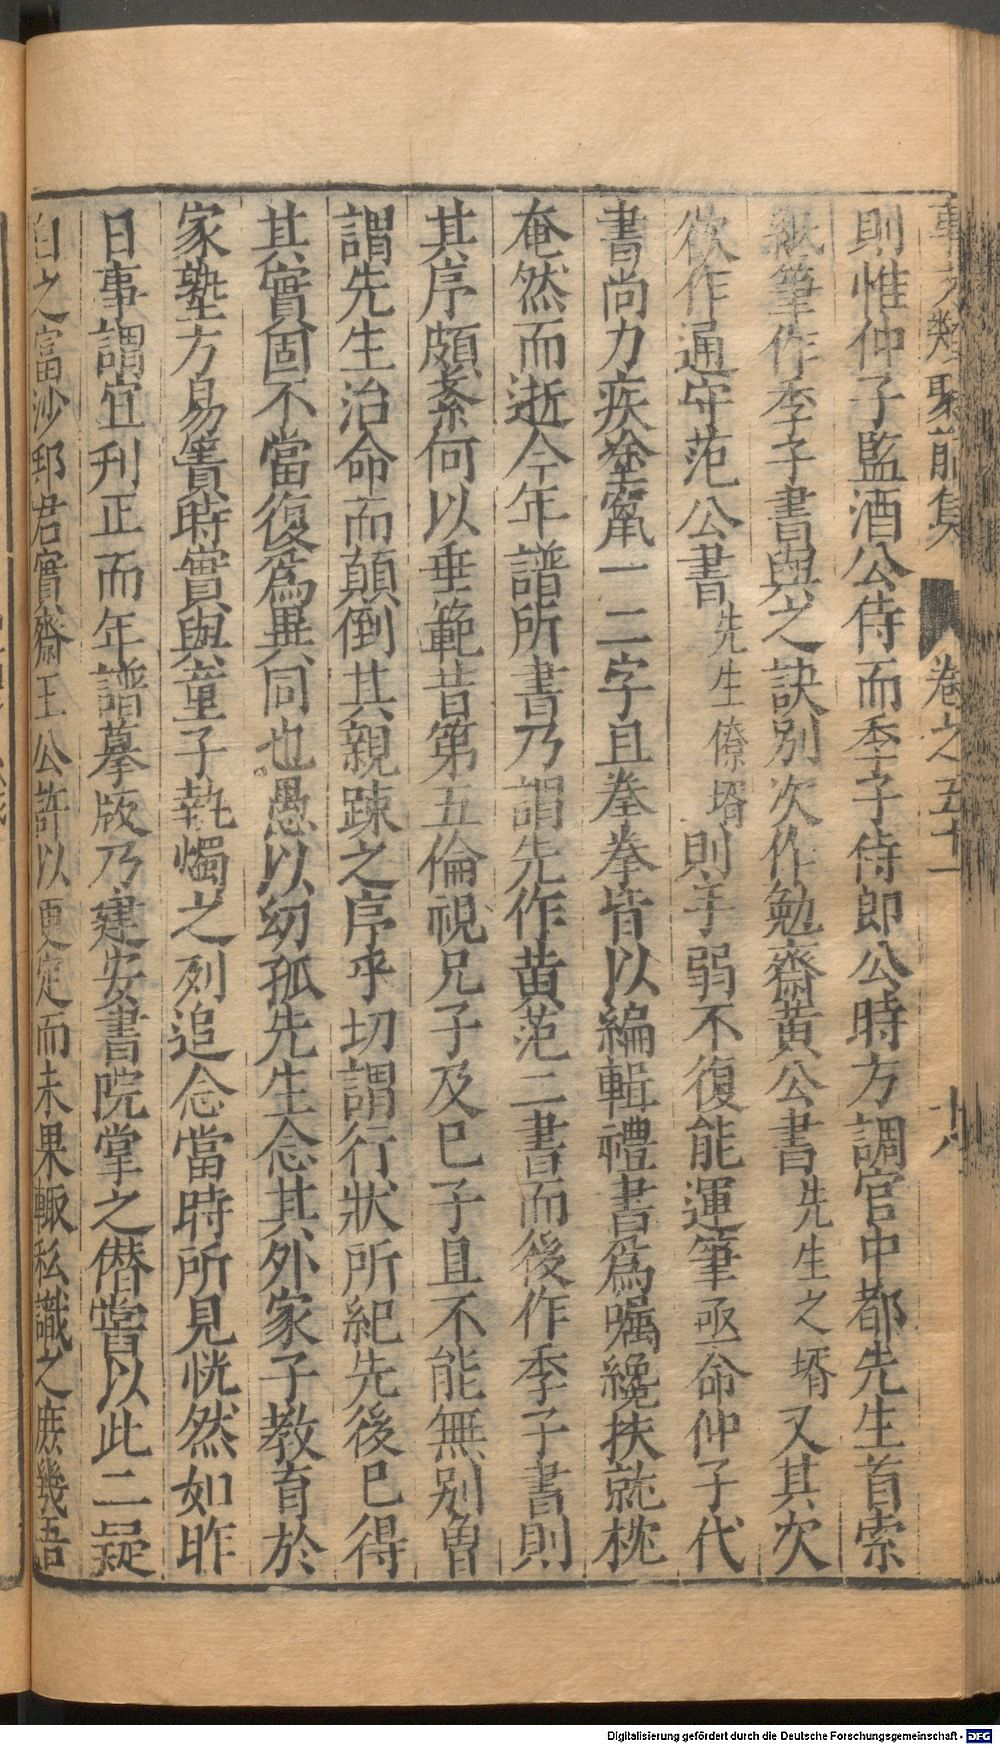 事文類聚前集 卷之五十一 十八
則惟仲子監酒公侍而季子侍郎公時方調官中都先生首索
紙筆作季子書與之訣別次作勉齋黃公書先生之壻又其次
欲作通守范公書先生僚壻則手弱不復能運筆亟命仲子代
書尚力疾塗竄一二字且拳拳皆以編輯禮書爲嘱纔扶就枕
奄然而逝今年譜所書乃謂先作黄范二書而後作季子書則
其序頗紊何以垂範昔第五倫視兄子及巳子且不能無别曽
謂先生治命而顛倒其親踈之序乎切謂行狀所紀先後巳得
其實固不當復爲異同也愚以幼孤先生念其外家子教育於
家塾方易簀時實與童子執燭之列追念當時所見恍然如昨
日事謂宜刋正而年譜摹版乃建安書院掌之僣嘗以此二疑
白之富沙郡君實齋王公許以更定而未果輙私識之庶幾吾
Digitalisierung gefördert durch die Deutsche Forschungsgemeinschaft - DFG